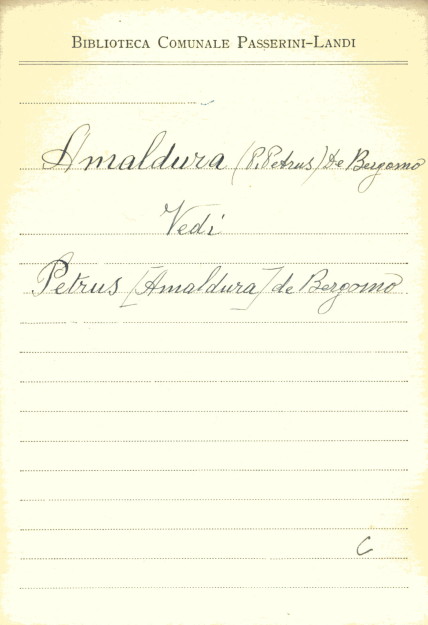 BIBLIOTECA COMUNALE PASSERINI-LANDI
Amaldura (P. Petrus) De Bergomo
Vedi
Petrus [Amaldura] de Bergomo
C